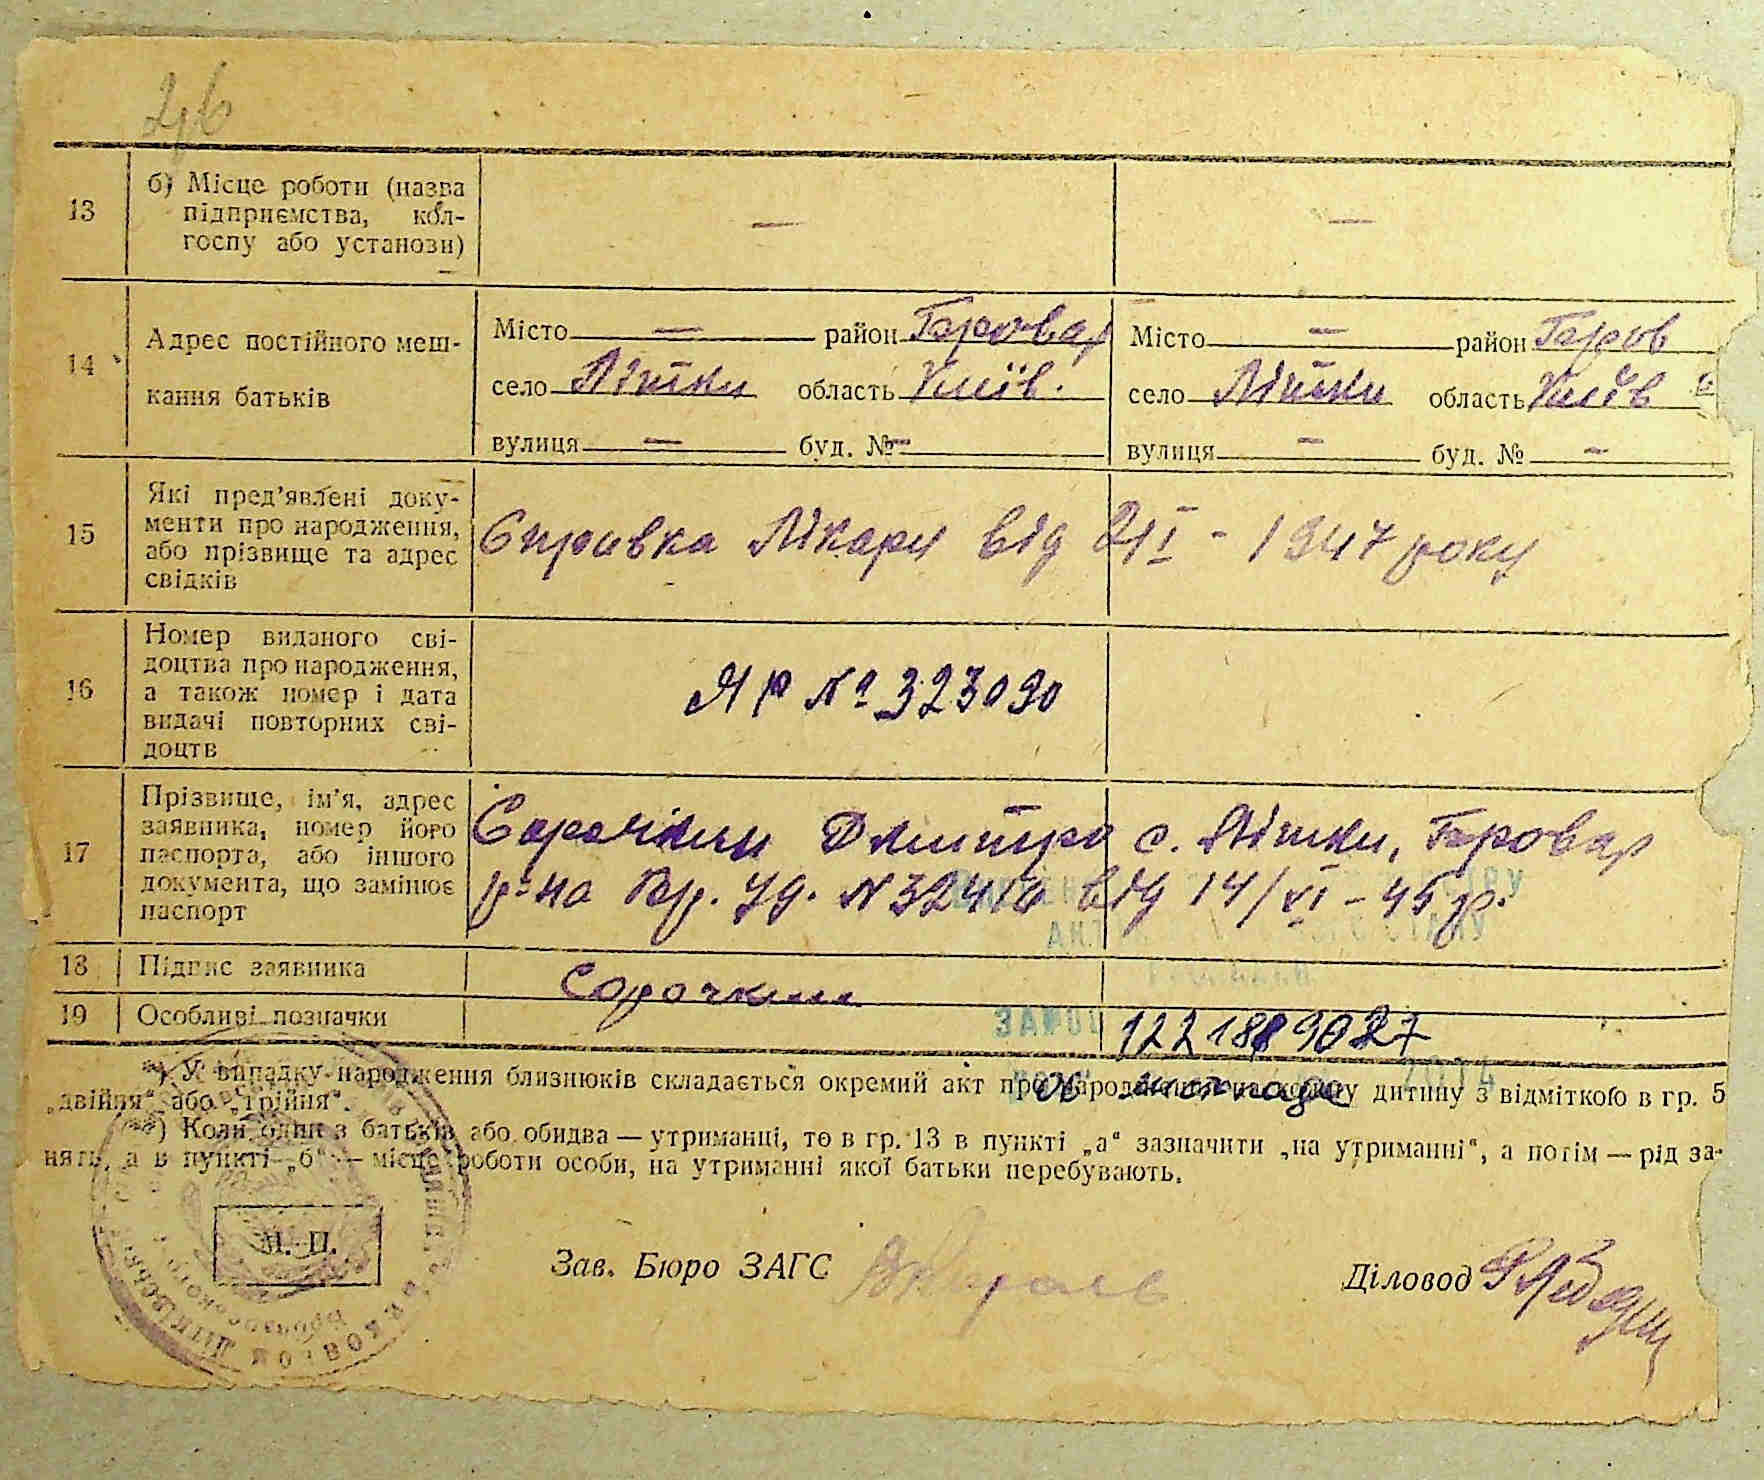 13
б) Місце роботи (назва
підприємства, кол-
госпу або установи)
—
—
14
Адрес постійного меш-
кання батьків
Місто — район Бровар
село Літки область Київ.
вулиця — буд. № —
Місто — район Бров
село Літки область Київ
вулиця — буд. № —
15
Які пред'явлені доку-
менти про народження,
або прізвище та адрес
свідків
Справка Лікаря від 2/I - 1947 року
16
Номер виданого сві-
доцтва про народження,
а також номер і дата
видачі повторних сві-
доцтв
ЯР № 323090
17
Прізвище, ім'я, адрес
заявника, номер його
паспорта, або іншого
документа, що замінює
паспорт
Сорочкин Дмитро с. Літки, Бровар
р-на Вр. Уд. N 32416 від 14/XI - 45 р.
18
Підпис заявника
Сорочкин
19
Особливі позначки
*) У випадку народження близнюків складається окремий акт про народження на кожну дитину з відміткою в гр. 5
„двійня" або „трійня".
**) Коли один з батьків або обидва — утриманці, то в гр. 13 в пункті „а" зазначити „на утриманні", а потім — рід за-
нять, а в пункті „б" — місце роботи особи, на утриманні якої батьки перебувають.
М. П.
Зав. Бюро ЗАГС
Діловод